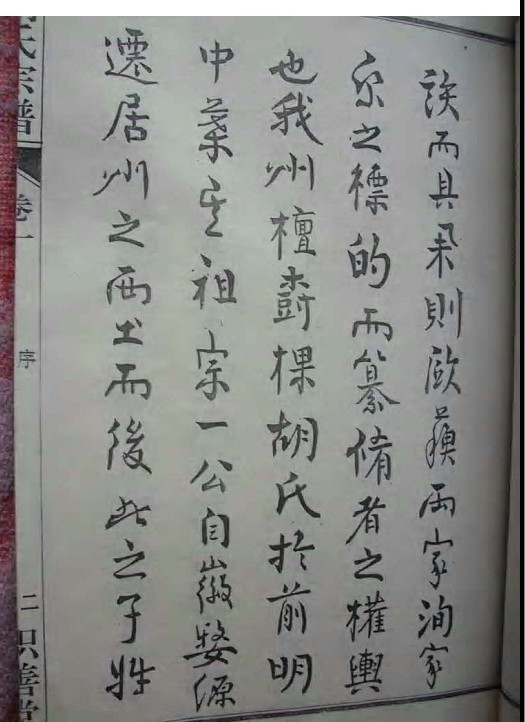 而具則歐蘓兩家洵家
乘之標的而纂脩者之權輿
也我州檀樹棵胡氏於前明
中葉其祖宗一公自徽婺源
遷居州之西土而後此之子姓
氏宗譜
卷一
序
二
善堂